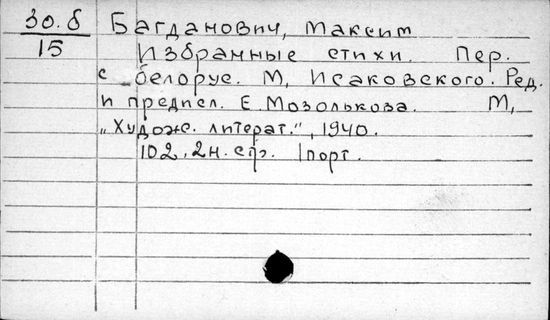 30.б Багданович, Максим
15 Избранные стихи. Пер.
с белорус. М, Исаковского. Ред.
и предисл. Е. Мозолькова. М,
„Худож. литерат.", 1940.
102, 2н. стр. 1 порт.